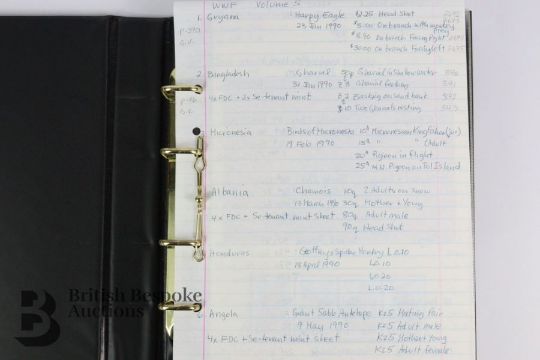 WWF Volume 5
1. Guyana : Harpy Eagle $2.25 Head Shot
23 Jan 1990 $5.00 On branch with prey
$8.90 On branch Facing Right
$30.00 On branch Facing left
2. Bangladesh : Gharial 50p Gharial in Shallow water
31 Jan 1990 Gharial feeding
4x FDC + 2x Se-tenant mint Basking on Sand bank
10 Two Gharials resting
Micronesia : Birds of Micronesia 10¢ Micronesian Kingfisher (juv)
19 Feb 1990 15¢ " " (Adult
20¢ Pigeon in Flight
25¢ Pigeon on Tol Island
Albania : Chamois 10q 2 Adults on Snow
15 March 1990 30q Mother + Young
4x FDC + Se-tenant mint Sheet 80q Adult male
90q Head Shot
Honduras : Geoffroys Spider Monkey L0.10
18 April 1990 L0.10
L0.20
L0.20
Angola : Giant Sable Antelope Kz5 Mating Pair
9 May 1990 Kz5 Adult Male
4x FDC + Se-tenant mint sheet Kz5 Mother + Young
Kz5 Adult Female
British Bespoke
Auctions